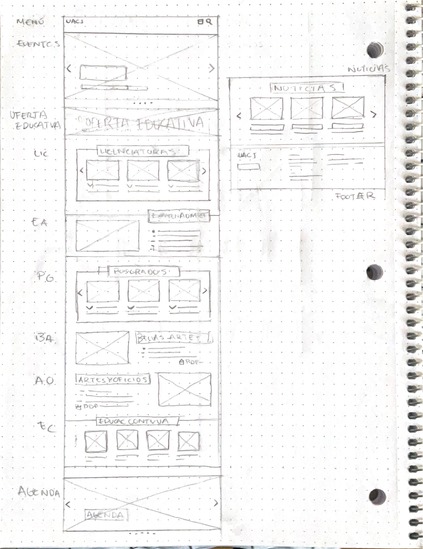 MENÚ
UACJ
EVENTOS
OFERTA
EDUCATIVA
OFERTA EDUCATIVA
LIC
LICENCIATURAS
E.A
PG
POSGRADOS
B.A.
BELLAS ARTES
PDF
A.O.
ARTES Y OFICIOS
PDF
E C
EDUC CONTINUA
AGENDA
AGENDA
NOTICIAS
NOTICIAS
UACJ
FOOTER